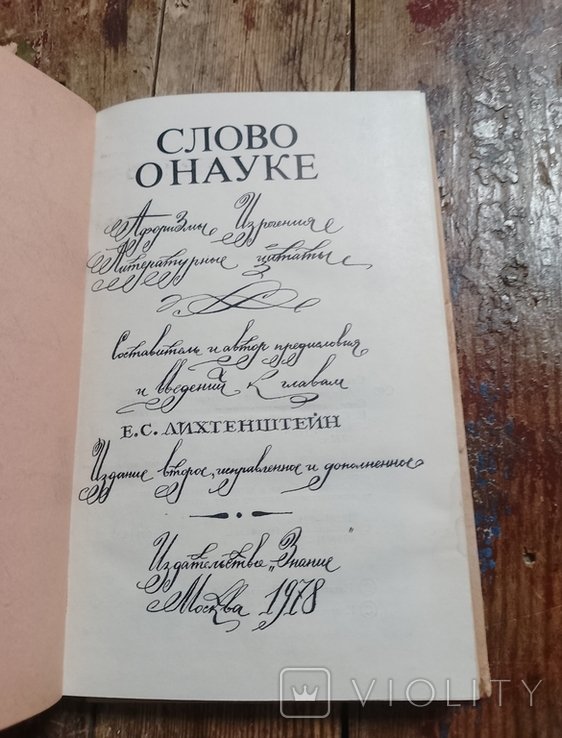 СЛОВО
О НАУКЕ
Афоризмы Изречения
Литературные цитаты
Составитель и автор предисловия
и введений к главам
Е.С. ЛИХТЕНШТЕЙН
Издание второе, исправленное и дополненное
Издательство „Знание"
Москва 1978
VIOLITY